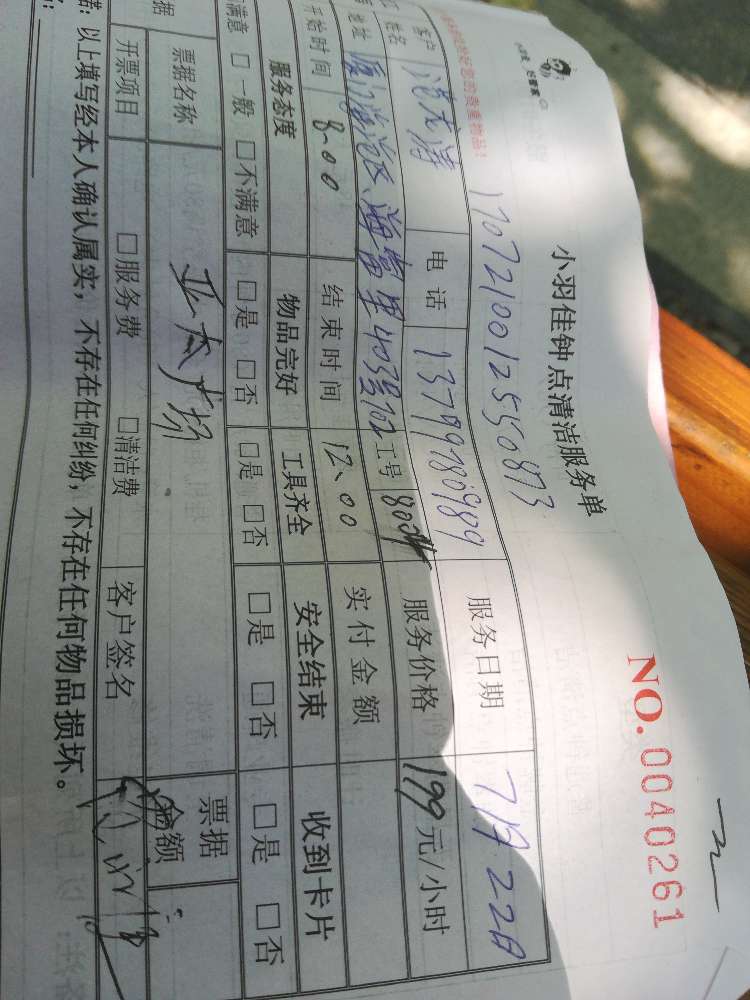 小羽佳钟点清洁服务单
NO.0040261
17072100125550873
您的贵重物品！
客户姓名 电话 13799780989 服务日期 7月22日
地址 海沧区海富里403号102 工号 服务价格 199元/小时
开始时间 8:00 结束时间 12:00 实付金额
服务态度 物品完好 工具齐全 安全结束 收到卡片
满意 □一般 □不满意 □是 □否 □是 □否 □是 □否 □是 □否
据 票据名称 亚太广场 票据金额
开票项目 □服务费 □清洁费 客户签名
诺：以上填写经本人确认属实，不存在任何纠纷，不存在任何物品损坏。